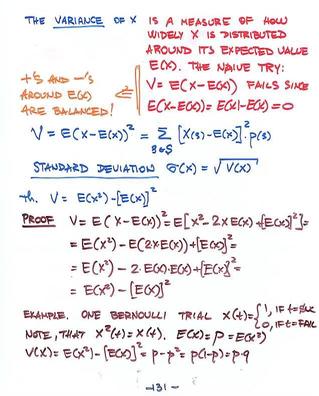 THE VARIANCE OF X IS A MEASURE OF HOW
WIDELY X IS DISTRIBUTED
AROUND ITS EXPECTED VALUE
E(X). THE NAIVE TRY:
V = E(X-E(X)) FAILS SINCE
E(X-E(X)) = E(X)-E(X) = 0
+'S AND -'S
AROUND E(X)
ARE BALANCED!
V = E(X-E(X))² = Σ [X(s)-E(X)]²·p(s)
s∈S
STANDARD DEVIATION σ(X) = √V(X)
Th. V = E(X²)-[E(X)]²
PROOF V = E(X-E(X))² = E[X²-2XE(X)+[E(X)]²] =
= E(X²)-E(2XE(X))+[E(X)]² =
= E(X²)-2·E(X)·E(X)+[E(X)]² =
= E(X²)-[E(X)]²
EXAMPLE. ONE BERNOULLI TRIAL X(t) = { 1, IF t=SUC
0, IF t=FAIL
NOTE, THAT X²(t) = X(t). E(X) = p = E(X²)
V(X) = E(X²)-[E(X)]² = p-p² = p(1-p) = p·q
-131-